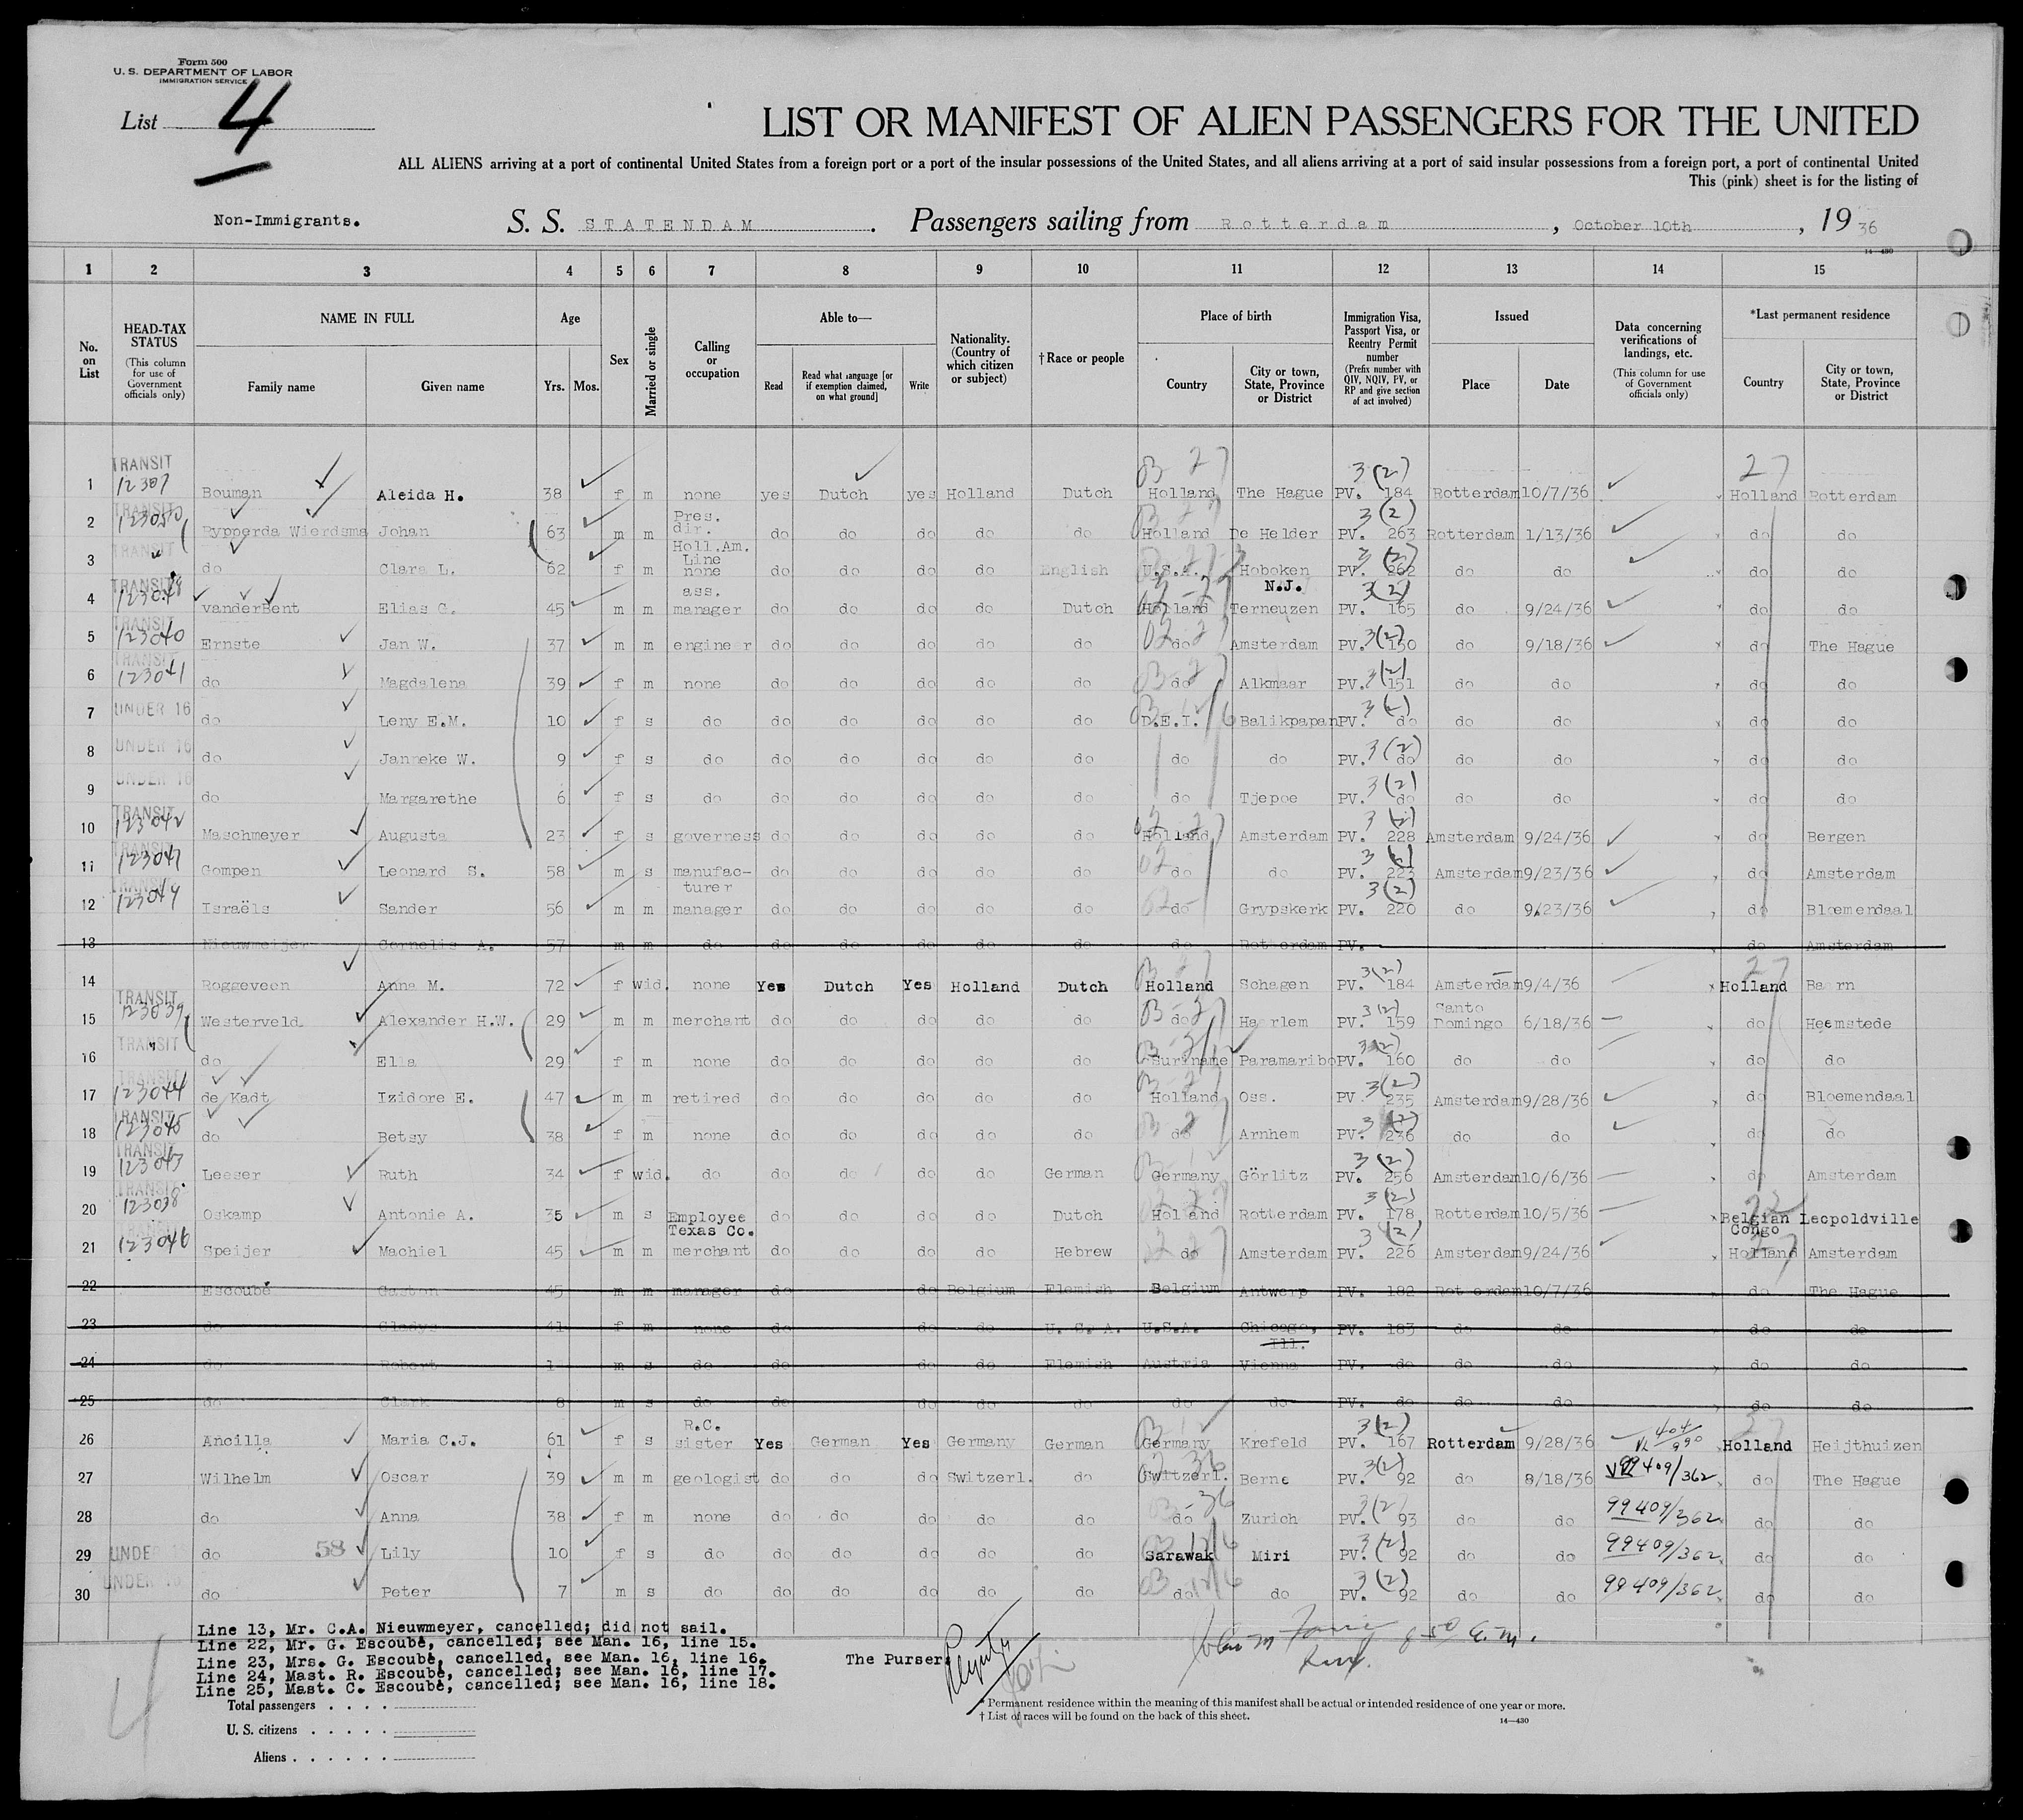 Form 500
U. S. DEPARTMENT OF LABOR
IMMIGRATION SERVICE
List 4
LIST OR MANIFEST OF ALIEN PASSENGERS FOR THE UNITED
ALL ALIENS arriving at a port of continental United States from a foreign port or a port of the insular possessions of the United States, and all aliens arriving at a port of said insular possessions from a foreign port, a port of continental United
This (pink) sheet is for the listing of
Non-Immigrants. S. S. STATENDAM. Passengers sailing from Rotterdam, October 10th, 1936
14—430
1 2 3 4 5 6 7 8 9 10 11 12 13 14 15
No. on List
HEAD-TAX STATUS (This column for use of Government officials only)
NAME IN FULL Family name Given name
Age Yrs. Mos.
Sex
Married or single
Calling or occupation
Able to— Read Read what language [or if exemption claimed, on what ground] Write
Nationality. (Country of which citizen or subject)
†Race or people
Place of birth Country City or town, State, Province or District
Immigration Visa, Passport Visa, or Reentry Permit number (Prefix number with QIV, NQIV, PV, or RP and give section of act involved)
Issued Place Date
Data concerning verifications of landings, etc. (This column for use of Government officials only)
*Last permanent residence Country City or town, State, Province or District
1 TRANSIT Bouman Aleida H. 38 f m none yes Dutch yes Holland Dutch Holland The Hague PV. 3(2) 184 Rotterdam 10/7/36 Holland Rotterdam
2 TRANSIT Rypperda Wierdsma Johan 63 m m Pres. dir. Holl.Am. Line do do do do do Holland De Helder PV. 3(2) 263 Rotterdam 1/13/36 do do
3 TRANSIT do Clara L. 62 f m none do do do do English U.S.A. Hoboken N.J. PV. 3(2) 262 do do do do
4 TRANSIT vanderBent Elias C. 45 m m ass. manager do do do do Dutch Holland Terneuzen PV. 3(2) 165 do 9/24/36 do do
5 TRANSIT 123040 Ernste Jan W. 37 m m engineer do do do do do do Amsterdam PV. 3(2) 150 do 9/18/36 do The Hague
6 TRANSIT 123041 do Magdalena 39 f m none do do do do do do Alkmaar PV. 3(2) 151 do do do do
7 UNDER 16 do Leny E.M. 10 f s do do do do do do D.E.I. Balikpapan PV. 3(2) do do do do do
8 UNDER 16 do Janneke W. 9 f s do do do do do do do do PV. 3(2) do do do do do
9 UNDER 16 do Margarethe 6 f s do do do do do do do Tjepoe PV. 3(2) do do do do do
10 TRANSIT 123042 Maschmeyer Augusta 23 f s governess do do do do do Holland Amsterdam PV. 3(2) 228 Amsterdam 9/24/36 do Bergen
11 TRANSIT Gompen Leonard S. 58 m s manufacturer do do do do do do do PV. 3(2) 223 Amsterdam 9/23/36 do Amsterdam
12 TRANSIT Israëls Sander 56 m m manager do do do do do do Grypskerk PV. 3(2) 220 do 9/23/36 do Bloemendaal
13 Nieuwmeijer Cornelis A. 57 m m do do do do do do do Rotterdam PV. do Amsterdam
14 Roggeveen Anna M. 72 f wid. none Yes Dutch Yes Holland Dutch Holland Schagen PV. 3(2) 184 Amsterdam 9/4/36 Holland Baarn
15 TRANSIT 123039 Westerveld Alexander H.W. 29 m m merchant do do do do do do Haarlem PV. 3(2) 159 Santo Domingo 6/18/36 do Heemstede
16 TRANSIT do Ella 29 f m none do do do do do Suriname Paramaribo PV. 3(2) 160 do do do do
17 TRANSIT 123044 de Kadt Izidore E. 47 m m retired do do do do do Holland Oss. PV. 3(2) 235 Amsterdam 9/28/36 do Bloemendaal
18 TRANSIT 123045 do Betsy 38 f m none do do do do do do Arnhem PV. 3(2) 236 do do do do
19 TRANSIT 123043 Leeser Ruth 34 f wid. do do do do do German Germany Görlitz PV. 3(2) 256 Amsterdam 10/6/36 do Amsterdam
20 TRANSIT 123038 Oskamp Antonie A. 35 m s Employee Texas Co. do do do do Dutch Holland Rotterdam PV. 3(2) 178 Rotterdam 10/5/36 Belgian Congo Leopoldville
21 TRANSIT 123046 Speijer Machiel 45 m m merchant do do do do Hebrew do Amsterdam PV. 3(2) 226 Amsterdam 9/24/36 Holland Amsterdam
22 Escoubé Gaston 45 m m manager do do Belgium Flemish Belgium Antwerp PV. 182 Rotterdam 10/7/36 do The Hague
23 do Gladys 41 f m none do do do U. S. A. U.S.A. Chicago, Ill. PV. 183 do do do do
24 do Robert m s do do do do Flemish Austria Vienna PV. do do do do do
25 do Clark 8 m s do do do do do do do PV. do do do do do
26 Ancilla Maria C.J. 61 f s R.C. sister Yes German Yes Germany German Germany Krefeld PV. 3(2) 167 Rotterdam 9/28/36 Holland Heijthuizen
27 Wilhelm Oscar 39 m m geologist do do do Switzerl. do Switzerl. Berne PV. 3(2) 92 do 8/18/36 99409/362 do The Hague
28 do Anna 38 f m none do do do do do do Zurich PV. 3(2) 93 do do 99409/362 do do
29 UNDER 16 do 58 Lily 10 f s do do do do do do Sarawak Miri PV. 3(2) 92 do do 99409/362 do do
30 UNDER 16 do Peter 7 m s do do do do do do do do PV. 3(2) 92 do do 99409/362 do do
Line 13, Mr. C.A. Nieuwmeyer, cancelled; did not sail.
Line 22, Mr. G. Escoubé, cancelled; see Man. 16, line 15.
Line 23, Mrs. G. Escoubé, cancelled, see Man. 16, line 16.
Line 24, Mast. R. Escoubé, cancelled; see Man. 16, line 17.
Line 25, Mast. C. Escoubé, cancelled; see Man. 16, line 18.
The Purser.
Total passengers
U. S. citizens
Aliens
* Permanent residence within the meaning of this manifest shall be actual or intended residence of one year or more.
† List of races will be found on the back of this sheet.
14—430
4